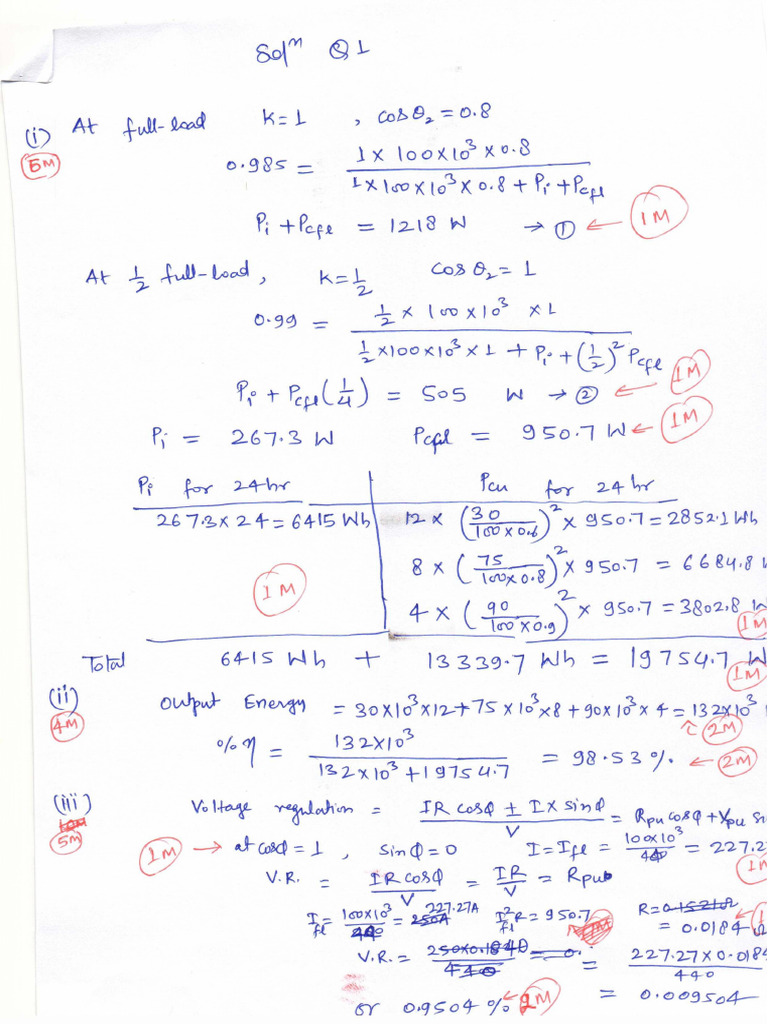 Solⁿ Q1
(i) At full-load K=1 , cosθ₂ = 0.8
5M
0.985 = 1 × 100×10³ × 0.8 / 1×100×10³×0.8 + Pi + Pcfl
Pi + Pcfl = 1218 W → ① ← 1M
At 1/2 full-load, K = 1/2 cosθ₂ = 1
0.99 = 1/2 × 100×10³ ×1 / 1/2 ×100×10³×1 + Pi + (1/2)² Pcfl
Pi + Pcfl (1/4) = 505 W → ② ← 1M
Pi = 267.3 W Pcfl = 950.7 W ← 1M
Pi for 24hr | Pcu for 24hr
267.3×24 = 6415 Wh | 12 × (30/100×0.6)² × 950.7 = 2852.1 Wh
8 × (75/100×0.8)² × 950.7 = 6684.8 W
1M
4 × (90/100×0.9)² × 950.7 = 3802.8
1M
Total 6415 Wh + 13339.7 Wh = 19754.7 W
1M
(ii) Output Energy = 30×10³×12 + 75×10³×8 + 90×10³×4 = 132×10³
4M ← 2M
% η = 132×10³ / 132×10³ + 19754.7 = 98.53 % ← 2M
(iii) Voltage regulation = IR cosφ ± IX sinφ / V = Rpu cosφ + Xpu
5M
1M → at cosφ = 1 , sinφ = 0 I = Ifl = 100×10³/440 = 227.2
V.R. = IR cosφ / V = IR/V = Rpu
Ifl = 100×10³/440 = 250A 227.27A I²fl R = 950.7 R = 0.1521Ω
= 0.0184
V.R. = 250×0.1840 / 440 = 0. = 227.27×0.0184 / 440
or 0.9504 % ← 2M = 0.009504